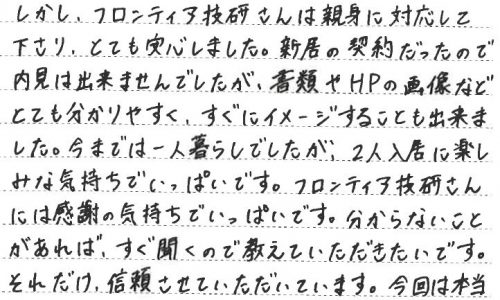 しかし、フロンティア技研さんは親身に対応して
下さり、とても安心しました。新居の契約だったので
内見は出来ませんでしたが、書類やHPの画像など
とても分かりやすく、すぐにイメージすることも出来ま
した。今までは一人暮らしでしたが、2人入居に楽し
みな気持ちでいっぱいです。フロンティア技研さん
には感謝の気持ちでいっぱいです。分からないこと
があれば、すぐ聞くので教えていただきたいです。
それだけ、信頼させていただいています。今回は本当